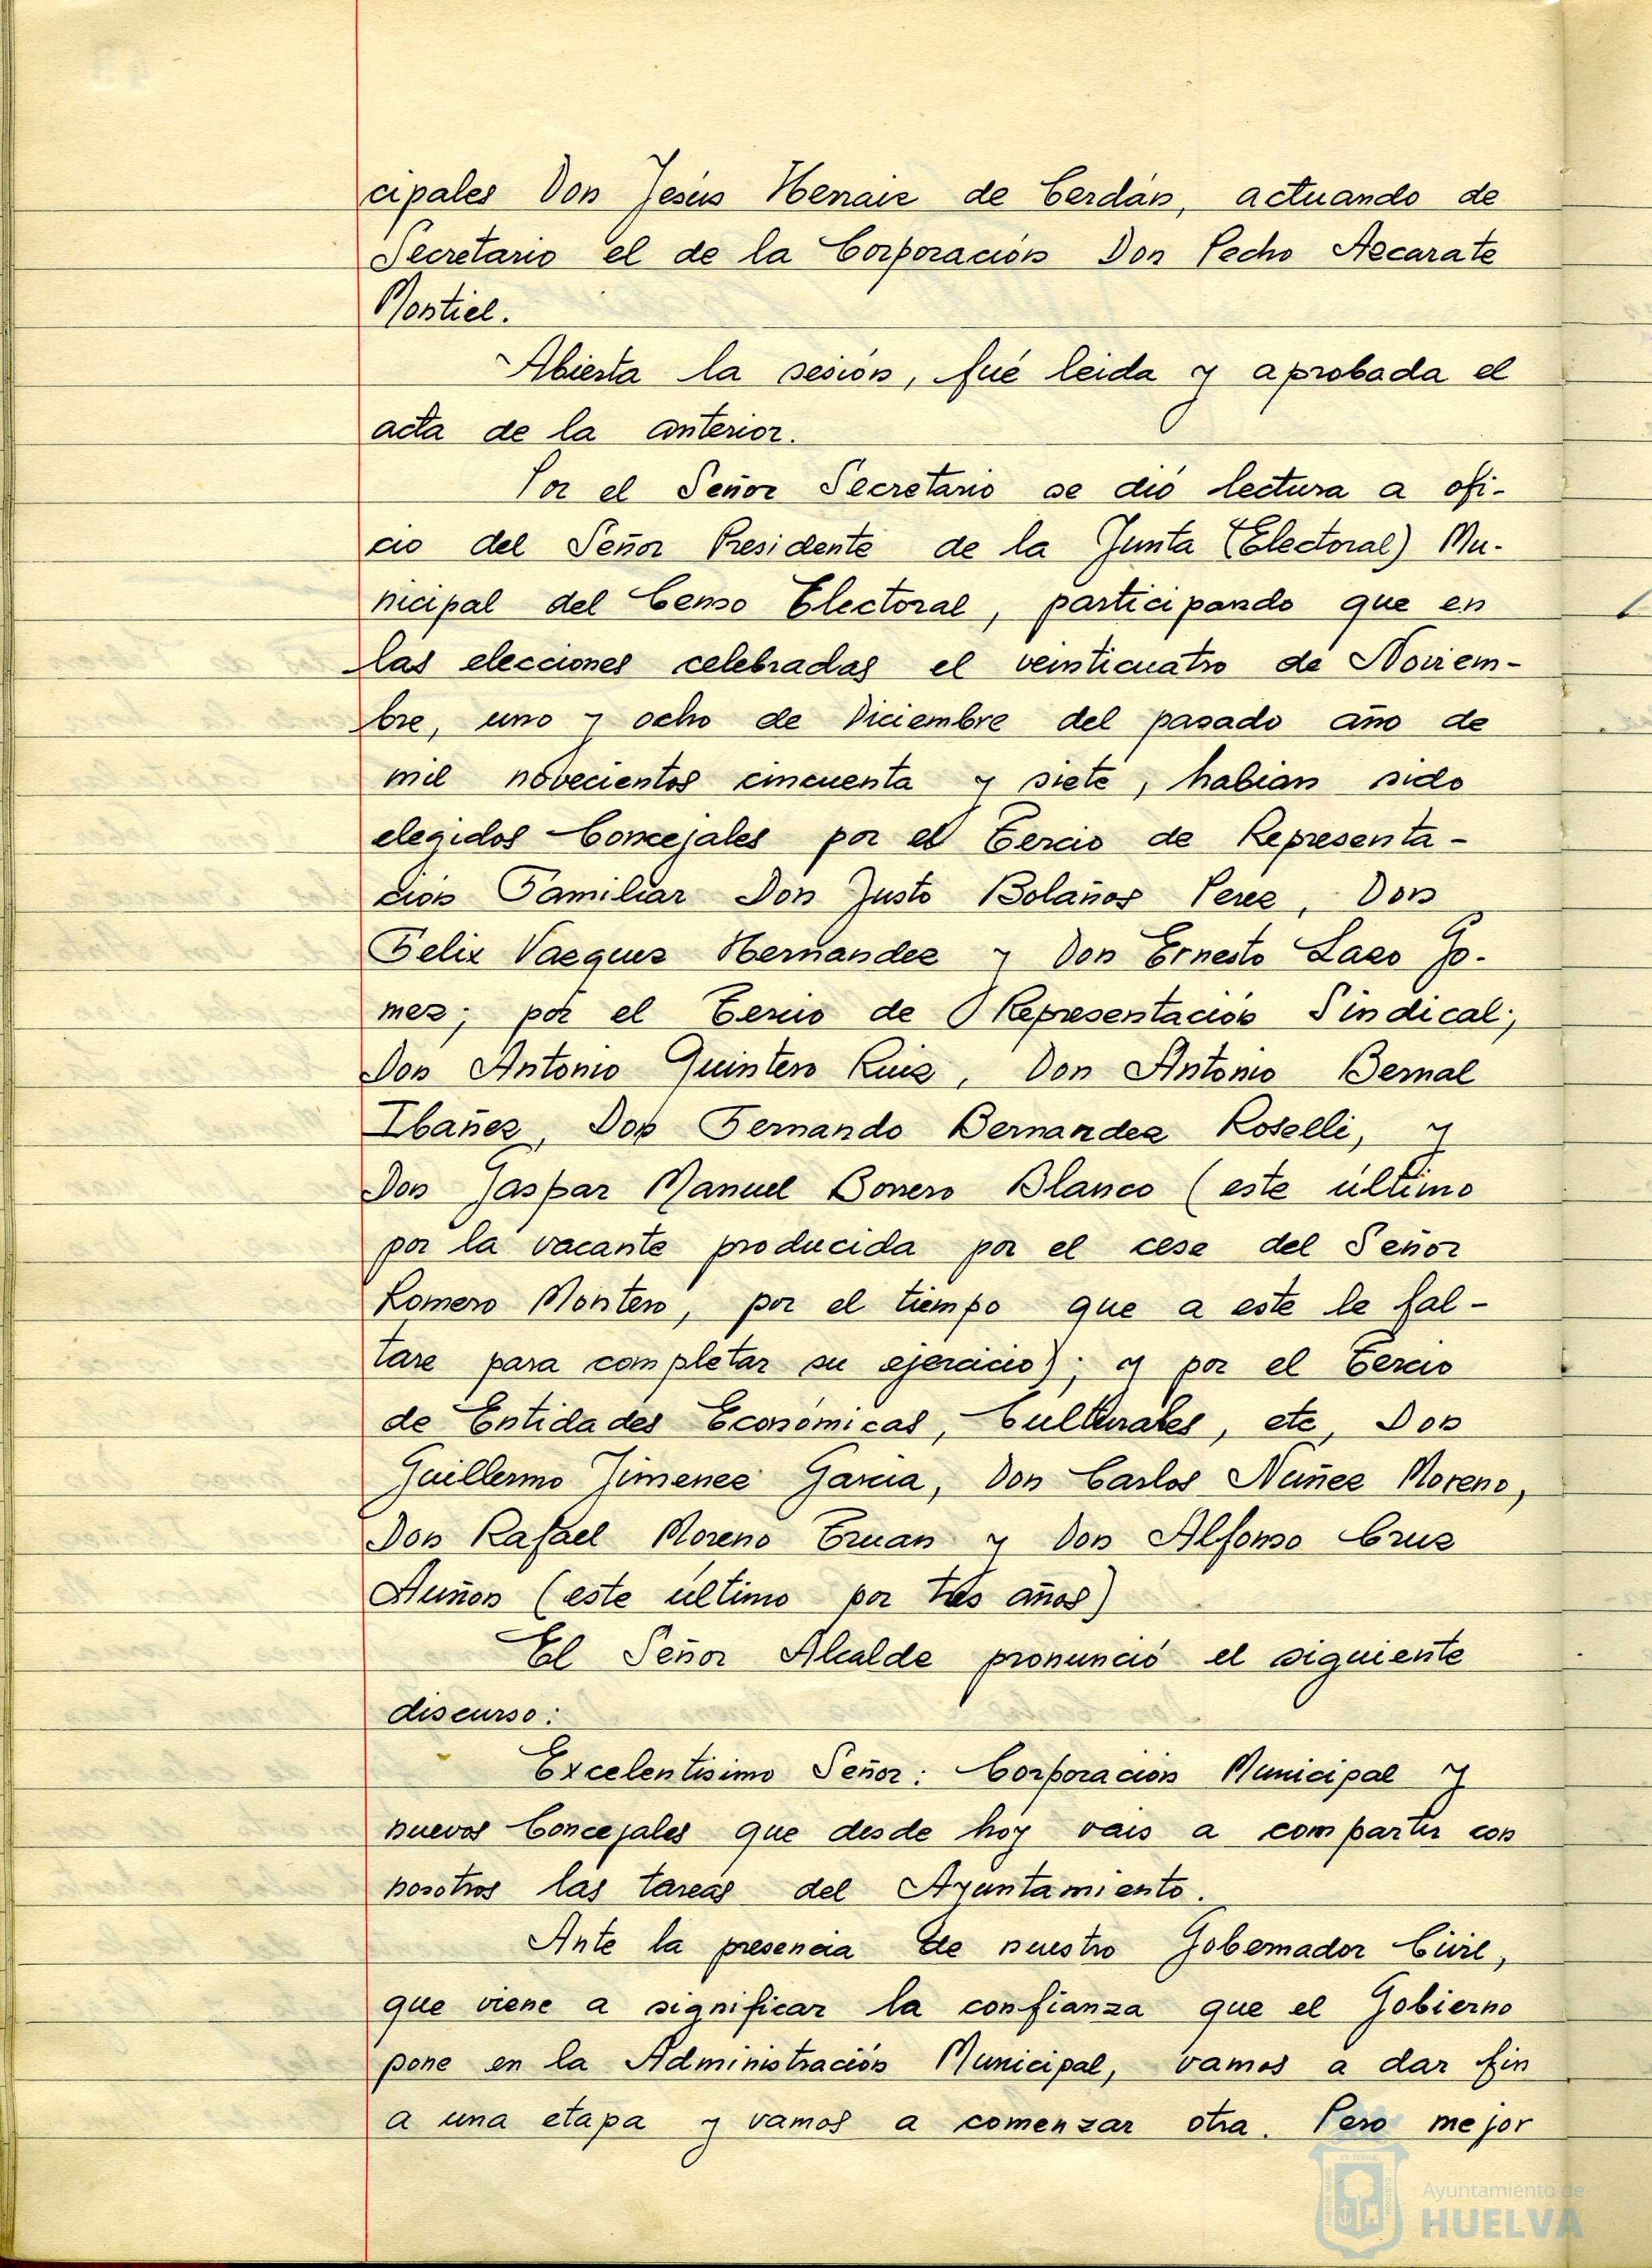 cipales Don Jesús Henaiz de Cerdán, actuando de
Secretario el de la Corporación Don Pecho Azcarate
Montiel.
Abierta la sesión, fué leida y aprobada el
acta de la anterior.
Por el Señor Secretario se dió lectura a ofi-
cio del Señor Presidente de la Junta (Electoral) Mu-
nicipal del Censo Electoral, participando que en
las elecciones celebradas el veinticuatro de Noviem-
bre, uno y ocho de Diciembre del pasado año de
mil novecientos cincuenta y siete, habian sido
elegidos Concejales por el Tercio de Representa-
ción Familiar Don Justo Bolaños Perez, Don
Felix Vazquez Hernandez y Don Ernesto Lazo Go-
mez; por el Tercio de Representación Sindical;
Don Antonio Quintero Ruiz, Don Antonio Bernal
Ibañez, Don Fernando Bernandez Roselli, y
Don Gaspar Manuel Bonero Blanco (este último
por la vacante producida por el cese del Señor
Romero Montero, por el tiempo que a este le fal-
tare para completar su ejercicio); y por el Tercio
de Entidades Económicas, Culturales, etc, Don
Guillermo Jimenez Garcia, Don Carlos Nuñez Moreno,
Don Rafael Moreno Eruan y Don Alfonso Cruz
Auñon (este último por tres años)
El Señor Alcalde pronunció el siguiente
discurso:
Excelentisimo Señor: Corporación Municipal y
nuevos Concejales que desde hoy vais a compartir con
nosotros las tareas del Ayuntamiento.
Ante la presencia de nuestro Gobernador Civil,
que viene a significar la confianza que el Gobierno
pone en la Administración Municipal, vamos a dar fin
a una etapa y vamos a comenzar otra. Pero mejor
Ayuntamiento de
HUELVA